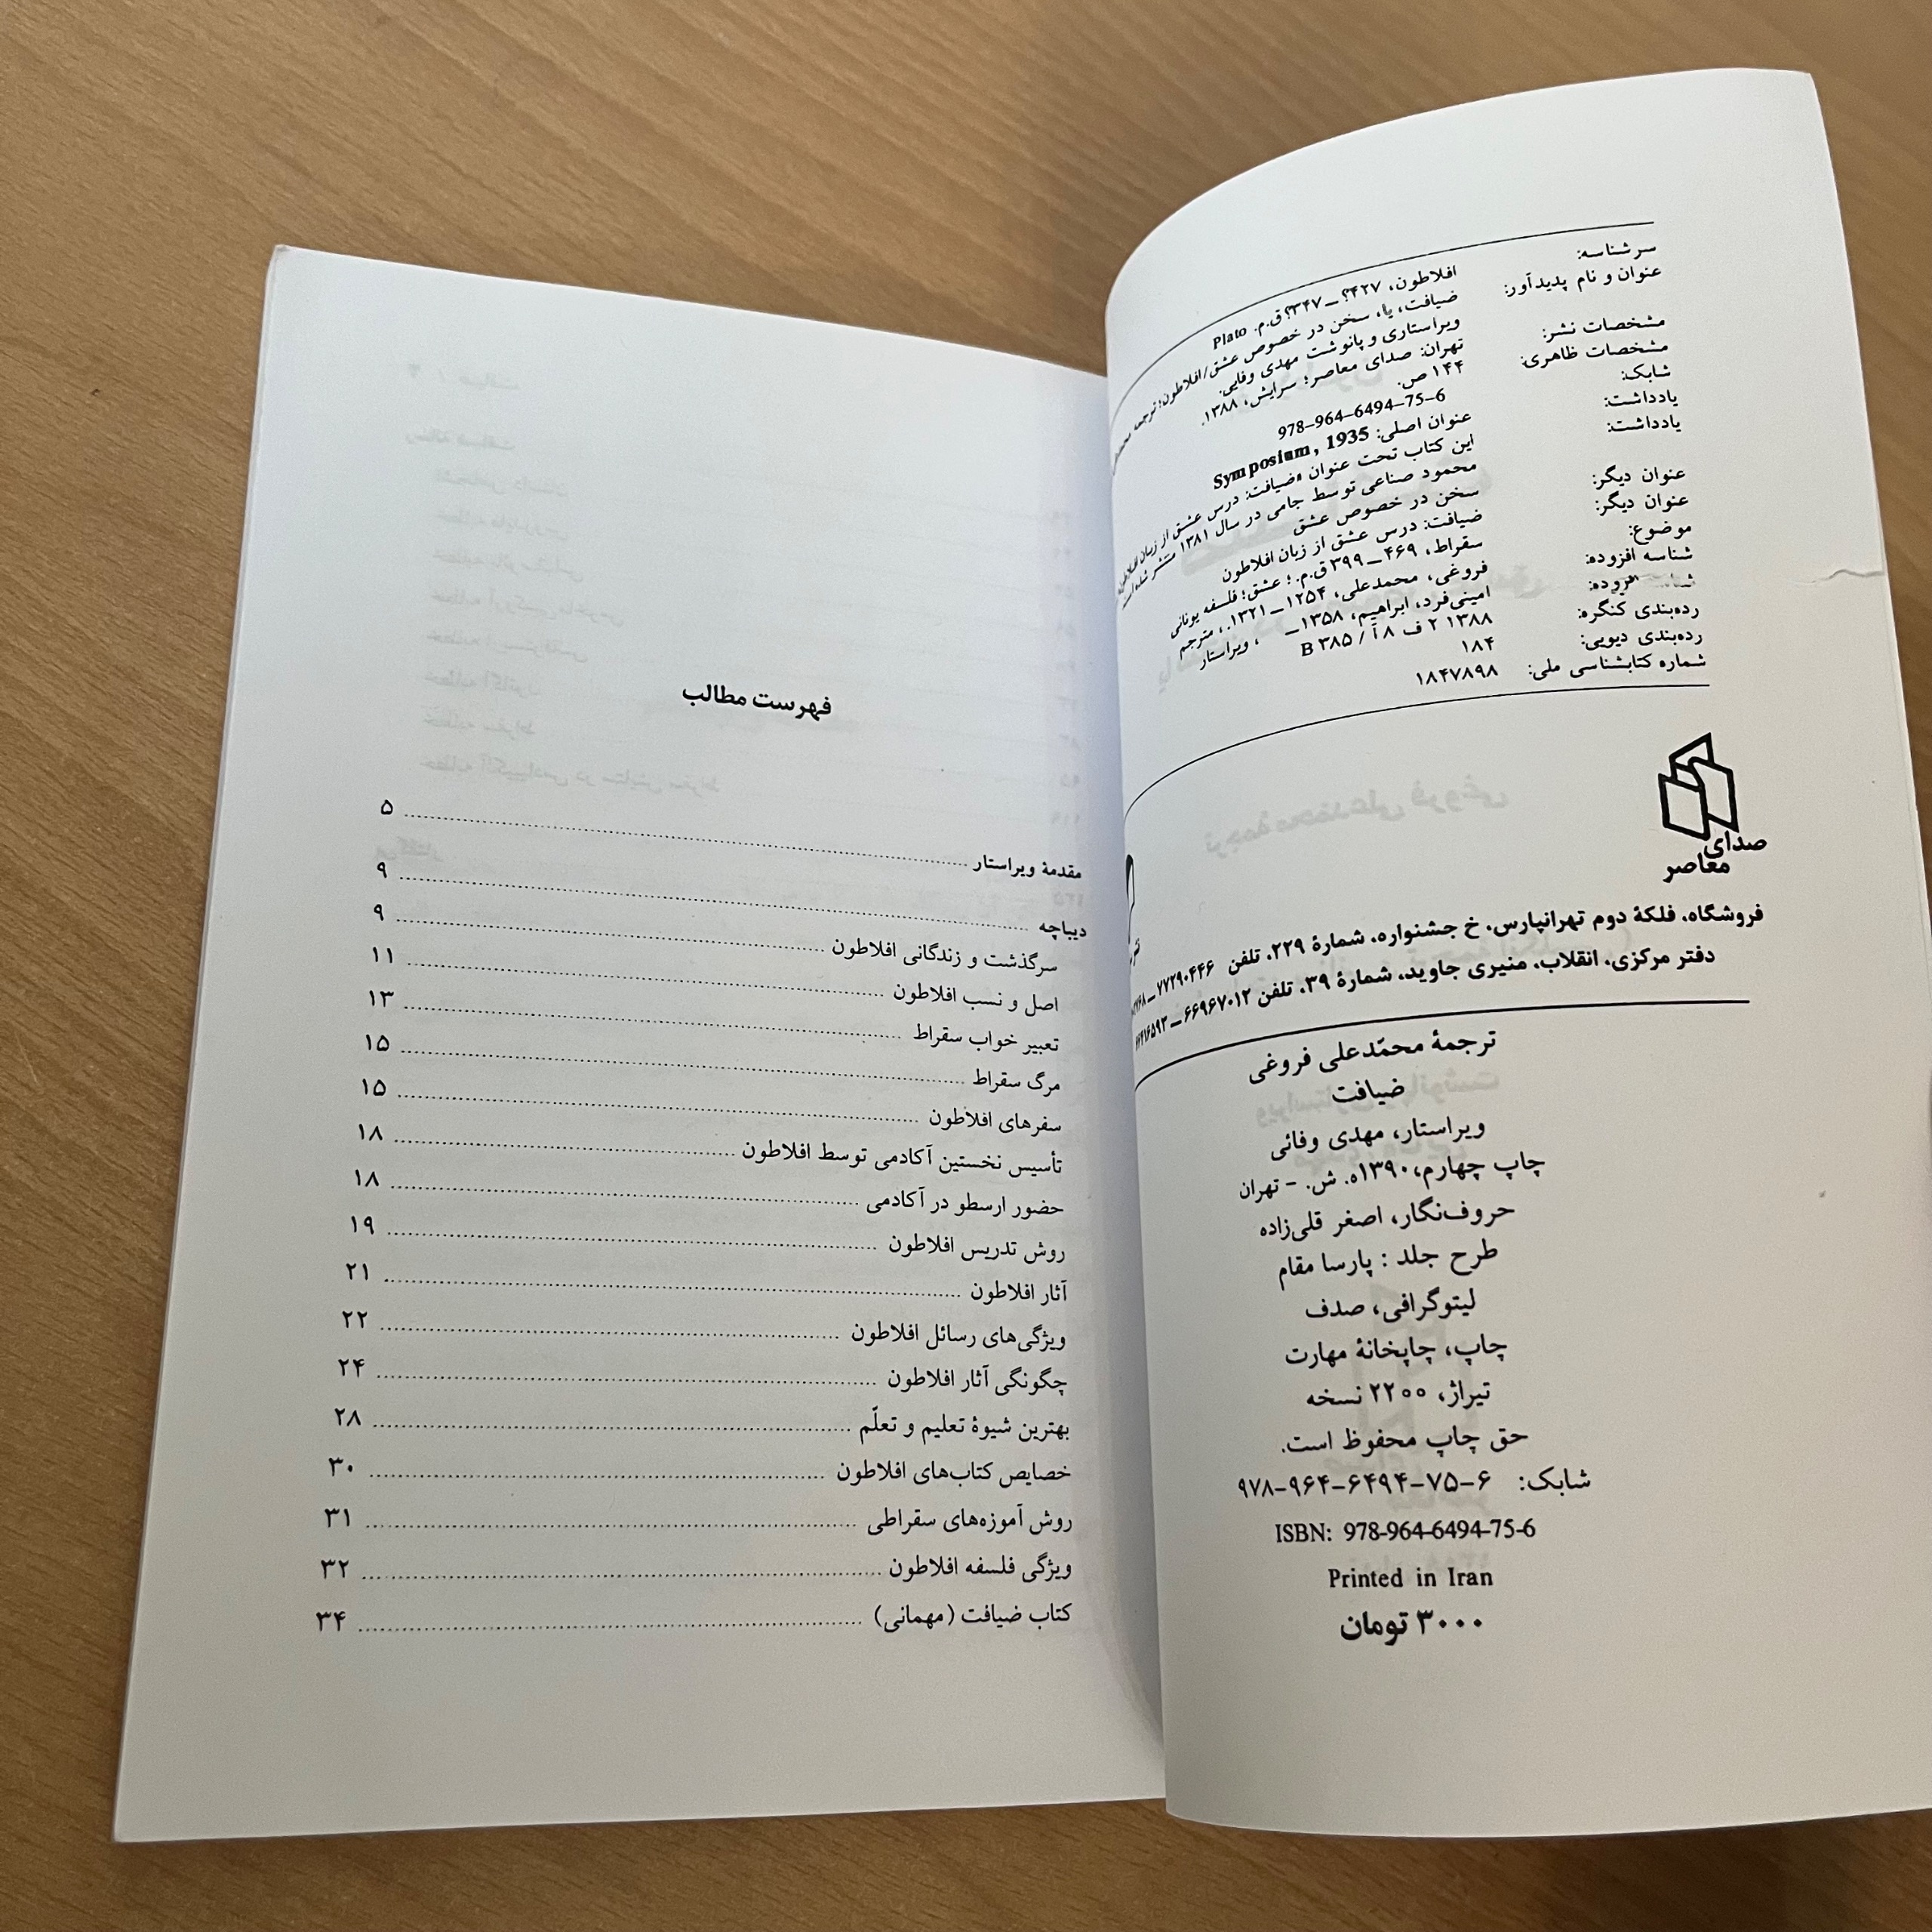 سرشناسه: افلاطون، ۴۲۷؟ ــ ۳۴۷؟ ق.م. Plato
عنوان و نام پدیدآور: ضیافت، یا، سخن در خصوص عشق/افلاطون؛ ترجمه
ویراستاری و پانوشت مهدی وفایی.
مشخصات نشر: تهران: صدای معاصر؛ سرایش، ۱۳۸۸.
مشخصات ظاهری: ۱۴۴ ص.
شابک: 978-964-6494-75-6
یادداشت: عنوان اصلی: Symposium, 1935
یادداشت: این کتاب تحت عنوان «ضیافت: درس عشق از زبان افلاطون»
محمود صناعی توسط جامی در سال ۱۳۸۱ منتشر شده است
عنوان دیگر: سخن در خصوص عشق
عنوان دیگر: ضیافت: درس عشق از زبان افلاطون
موضوع: سقراط، ۴۶۹ ــ ۳۹۹ ق.م.؛ عشق؛ فلسفه یونانی
شناسه افزوده: فروغی، محمدعلی، ۱۲۵۴ ــ ۱۳۲۱.، مترجم
شناسه افزوده: امینی‌فرد، ابراهیم، ۱۳۵۸ــ ، ویراستار
رده‌بندی کنگره: ۱۳۸۸ ۲ ف ۸ آ / B ۳۸۵
رده‌بندی دیویی: ۱۸۴
شماره کتابشناسی ملی: ۱۸۴۷۸۹۸
صدای
معاصر
فروشگاه، فلکۀ دوم تهرانپارس، خ جشنواره، شمارۀ ۲۲۹، تلفن ۷۷۲۹۰۴۴۶ ــ
دفتر مرکزی، انقلاب، منیری جاوید، شمارۀ ۳۹، تلفن ۶۶۹۶۷۰۱۲ ــ
ترجمۀ محمّدعلی فروغی
ضیافت
ویراستار، مهدی وفائی
چاپ چهارم، ۱۳۹۰ه. ش. - تهران
حروف‌نگار، اصغر قلی‌زاده
طرح جلد : پارسا مقام
لیتوگرافی، صدف
چاپ، چاپخانۀ مهارت
تیراژ، ۲۲۰۰ نسخه
حق چاپ محفوظ است.
شابک: ۹۷۸-۹۶۴-۶۴۹۴-۷۵-۶
ISBN: 978-964-6494-75-6
Printed in Iran
۳۰۰۰ تومان
فهرست مطالب
مقدمۀ ویراستار ........ ۵
دیباچه ........ ۹
سرگذشت و زندگانی افلاطون ........ ۹
اصل و نسب افلاطون ........ ۱۱
تعبیر خواب سقراط ........ ۱۳
مرگ سقراط ........ ۱۵
سفرهای افلاطون ........ ۱۵
تأسیس نخستین آکادمی توسط افلاطون ........ ۱۸
حضور ارسطو در آکادمی ........ ۱۸
روش تدریس افلاطون ........ ۱۹
آثار افلاطون ........ ۲۱
ویژگی‌های رسائل افلاطون ........ ۲۲
چگونگی آثار افلاطون ........ ۲۴
بهترین شیوۀ تعلیم و تعلّم ........ ۲۸
خصایص کتاب‌های افلاطون ........ ۳۰
روش آموزه‌های سقراطی ........ ۳۱
ویژگی فلسفه افلاطون ........ ۳۲
کتاب ضیافت (مهمانی) ........ ۳۴